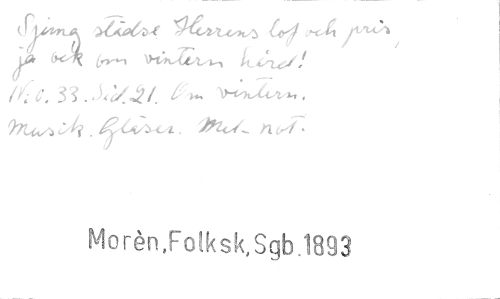 Sjung städse Herrens lof och pris,
ja ock om vintern hård!
N:o. 33. Sid. 21. Om vintern.
Musik. Gläser. Mel- not.
Morèn,Folksk,Sgb.1893